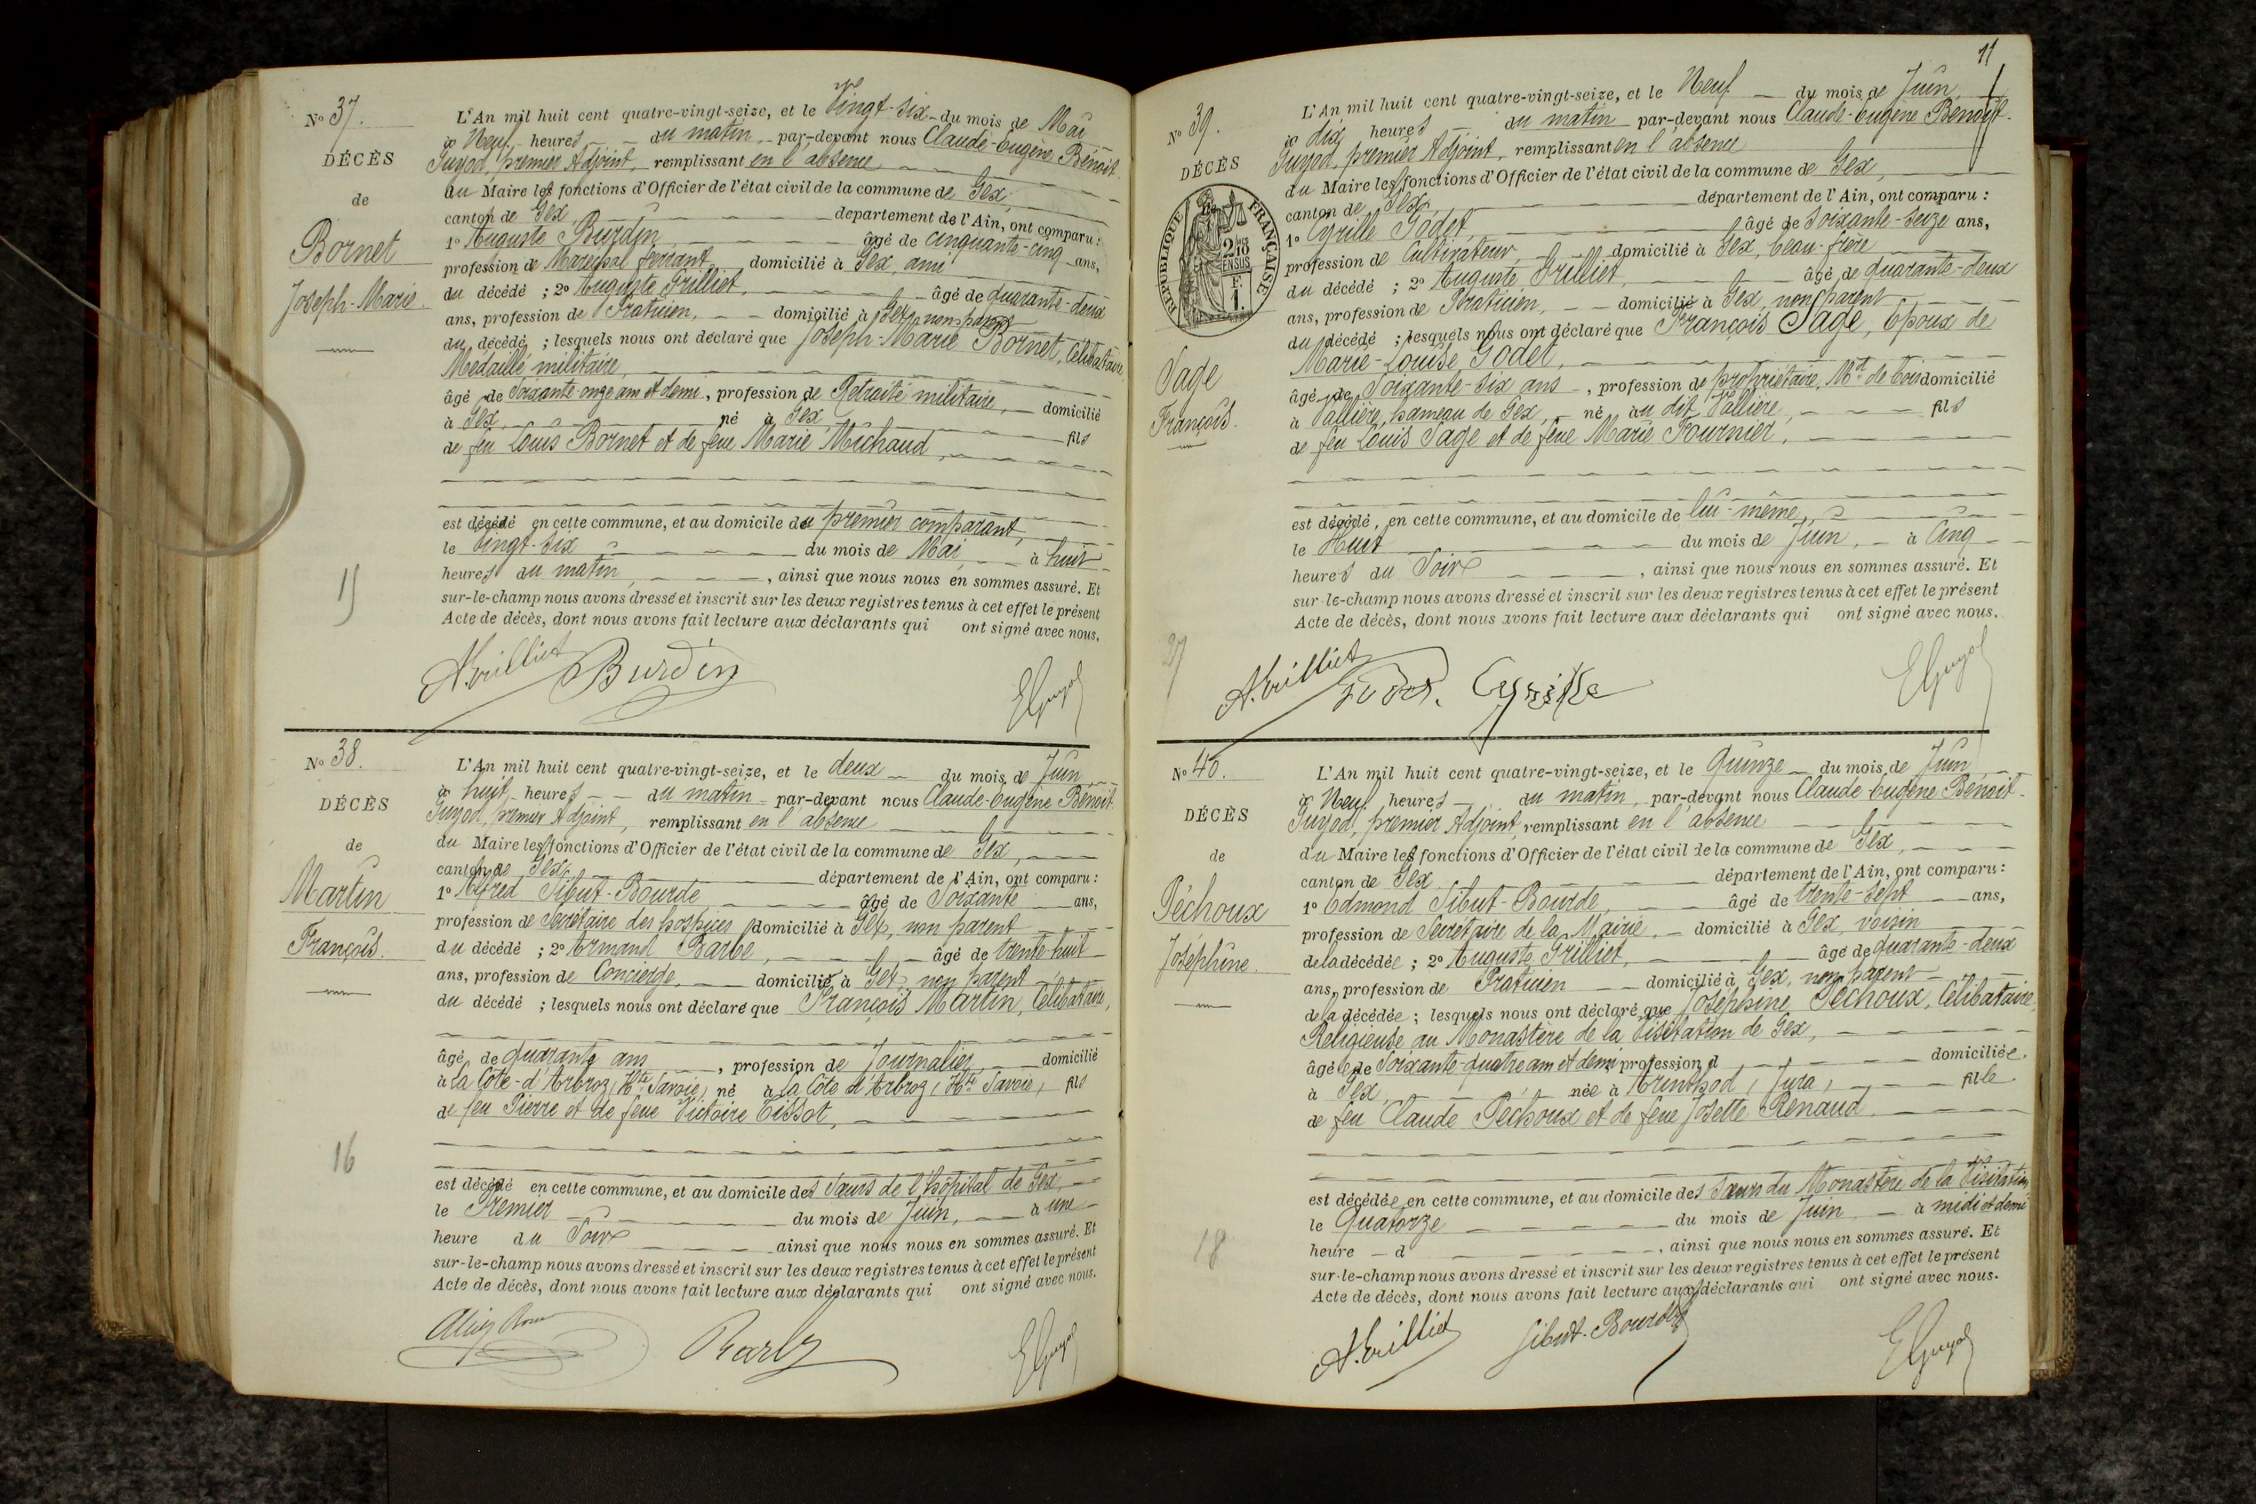 No 37.
DÉCÈS
de
Bornet
Joseph-Marie.
L'An mil huit cent quatre-vingt-seize, et le Vingt-six du mois de Mai
à Neuf heures du matin par-devant nous Claude-Eugène Benoit
Guyod, premier Adjoint, remplissant en l'absence
du Maire les fonctions d'Officier de l'état civil de la commune de Gex,
canton de Gex département de l'Ain, ont comparu :
1o Auguste Burdin, âgé de cinquante-cinq ans,
profession de Maréchal ferrant domicilié à Gex, ami
du décédé ; 2o Auguste Grilliet, âgé de quarante-deux
ans, profession de Praticien, domicilié à Gex, non parent
du décédé ; lesquels nous ont déclaré que Joseph-Marie Bornet, Célibataire,
Médaillé militaire,
âgé de Soixante onze ans et demi, profession de Retraité militaire, domicilié
à Gex, né à Gex, fils
de feu Louis Bornet et de feue Marie Michaud,
est décédé en cette commune, et au domicile du premier comparant,
le Vingt-six du mois de Mai, à huit
heures du matin, ainsi que nous nous en sommes assuré. Et
sur-le-champ nous avons dressé et inscrit sur les deux registres tenus à cet effet le présent
Acte de décès, dont nous avons fait lecture aux déclarants qui ont signé avec nous.
15
A. Grilliet Burdin EGuyod
No 38.
DÉCÈS
de
Martin
François.
L'An mil huit cent quatre-vingt-seize, et le deux du mois de Juin
à huit heures du matin par-devant nous Claude-Eugène Benoit
Guyod, premier Adjoint, remplissant en l'absence
du Maire les fonctions d'Officier de l'état civil de la commune de Gex,
canton de Gex département de l'Ain, ont comparu :
1o Alfred Sibut-Bourde âgé de Soixante ans,
profession de Secrétaire des hospices domicilié à Gex, non parent
du décédé ; 2o Armand Barbe, âgé de trente huit
ans, profession de Concierge, domicilié à Gex, non parent
du décédé ; lesquels nous ont déclaré que François Martin, Célibataire,
âgé de quarante ans, profession de Journalier, domicilié
à la Côte-d'Arbroz (Hte Savoie) né à la Côte d'Arbroz (Hte Savoie) fils
de feu Pierre et de feue Victoire Tissot,
est décédé en cette commune, et au domicile des Sœurs de l'hôpital de Gex,
le Premier du mois de Juin, à une
heure du Soir ainsi que nous nous en sommes assuré. Et
sur-le-champ nous avons dressé et inscrit sur les deux registres tenus à cet effet le présent
Acte de décès, dont nous avons fait lecture aux déclarants qui ont signé avec nous.
16
EGuyod
11
No 39.
DÉCÈS
RÉPUBLIQUE FRANÇAISE
Sage
François.
L'An mil huit cent quatre-vingt-seize, et le Neuf du mois de Juin,
à dix heures du matin par-devant nous Claude-Eugène Benoit
Guyod, premier Adjoint, remplissant en l'absence
du Maire les fonctions d'Officier de l'état civil de la commune de Gex,
canton de Gex, département de l'Ain, ont comparu :
1o Cyrille Godet, âgé de soixante-seize ans,
profession de Cultivateur, domicilié à Gex, beau-frère
du décédé ; 2o Auguste Grilliet, âgé de quarante-deux
ans, profession de Praticien, domicilié à Gex, non parent
du décédé ; lesquels nous ont déclaré que François Sage, Epoux de
Marie-Louise Godet,
âgé de Soixante-six ans, profession de propriétaire, Md de bois domicilié
à Vallière, hameau de Gex, né au dit Vallière, fils
de feu Louis Sage et de feue Marie Fournier,
est décédé, en cette commune, et au domicile de lui-même,
le Huit du mois de Juin, à Cinq
heures du Soir, ainsi que nous nous en sommes assuré. Et
sur-le-champ nous avons dressé et inscrit sur les deux registres tenus à cet effet le présent
Acte de décès, dont nous avons fait lecture aux déclarants qui ont signé avec nous.
A. Grilliet Godet. Cyrille EGuyod
No 40.
DÉCÈS
de
Péchoux
Joséphine.
L'An mil huit cent quatre-vingt-seize, et le Quinze du mois de Juin
à Neuf heures du matin, par-devant nous Claude Eugène Benoit
Guyod, premier Adjoint, remplissant en l'absence
du Maire les fonctions d'Officier de l'état civil de la commune de Gex,
canton de Gex département de l'Ain, ont comparu :
1o Edmond Sibut-Bourde, âgé de trente-sept ans,
profession de Secrétaire de la Mairie, domicilié à Gex, voisin
de la décédée ; 2o Auguste Grilliet, âgé de quarante-deux
ans, profession de Praticien domicilié à Gex, non parent
de la décédée ; lesquels nous ont déclaré que Joséphine Péchoux, Célibataire,
Religieuse au Monastère de la Visitation de Gex,
âgée de Soixante-quatre ans et demi profession d domiciliée
à Gex, née à Arinthod (Jura) fille
de feu Claude Péchoux et de feue Josette Renaud
est décédée en cette commune, et au domicile des Sœurs du Monastère de la Visitation
le Quatorze du mois de Juin à midi et demi
heure d , ainsi que nous nous en sommes assuré. Et
sur-le-champ nous avons dressé et inscrit sur les deux registres tenus à cet effet le présent
Acte de décès, dont nous avons fait lecture aux déclarants qui ont signé avec nous.
18
A. Grilliet Sibut-Bourde EGuyod